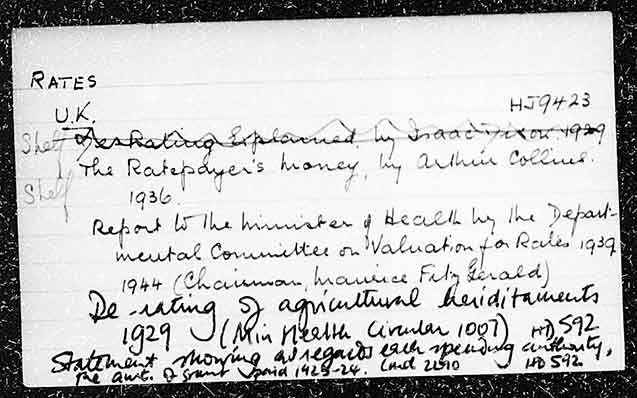 RATES
U.K.
HJ9423
Shelf De-Rating Explained by Isaac Dixon 1929
The Ratepayer's Money, by Arthur Collins.
Shelf 1936
Report to the Minister of Health by the Depart-
mental Committee on Valuation for Rates 1939
1944 (Chairman, Maurice FitzGerald)
De-rating of agricultural heriditaments
1929 (Min Health Circular 1007) HD 592
Statement showing as regards each spending authority,
the amt. of grant paid 1923-24. Cmd HD 592